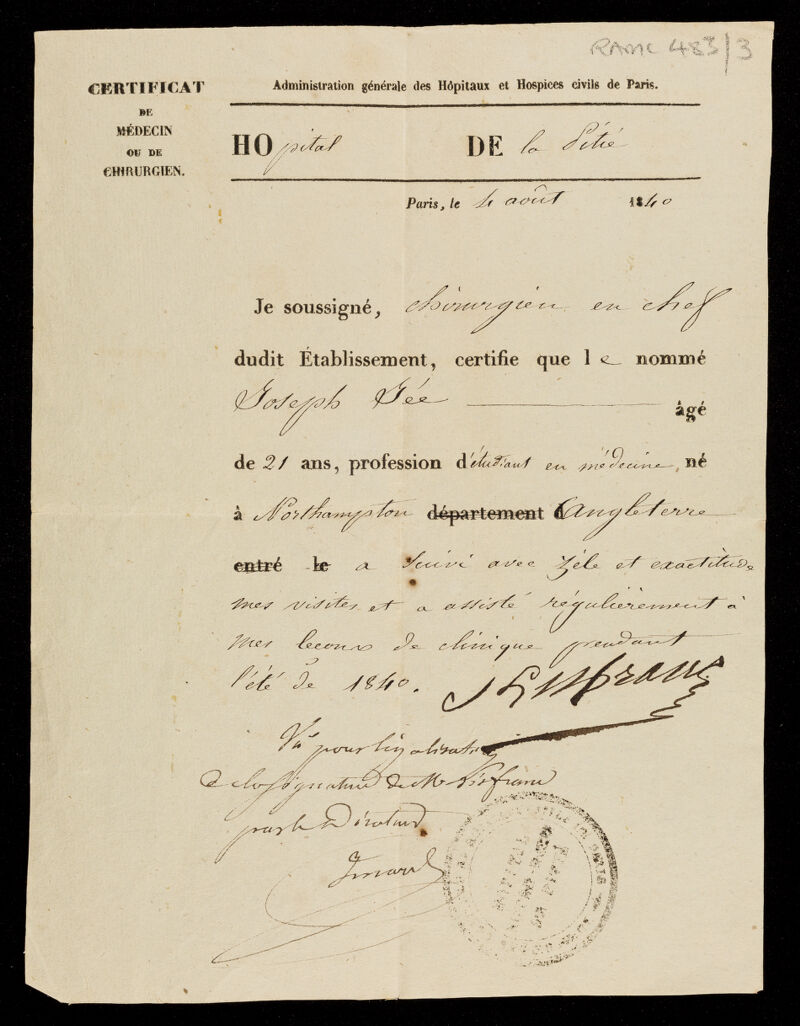 RAMC 483/3
CERTIFICAT
DE
MÉDECIN
OU DE
CHIRURGIEN.
Administration générale des Hôpitaux et Hospices civils de Paris.
HOpital DE la Pitié
Paris, le 4 août 1840
Je soussigné, chirurgien en chef
dudit Établissement, certifie que le nommé
Joseph Gée âgé
de 21 ans, profession d'étudiant en médecine, né
à Northampton département d'Angleterre
entré le a suivi avec zèle et exactitude
mes visites et a assisté régulièrement à
mes lecons de clinique pendant
l'été de 1840.
Lisfranc
Vu pour légalisation
de la signature de Mr Lisfranc
par le Directeur
HOPITAL
NOTRE-DAME
DE PITIÉ